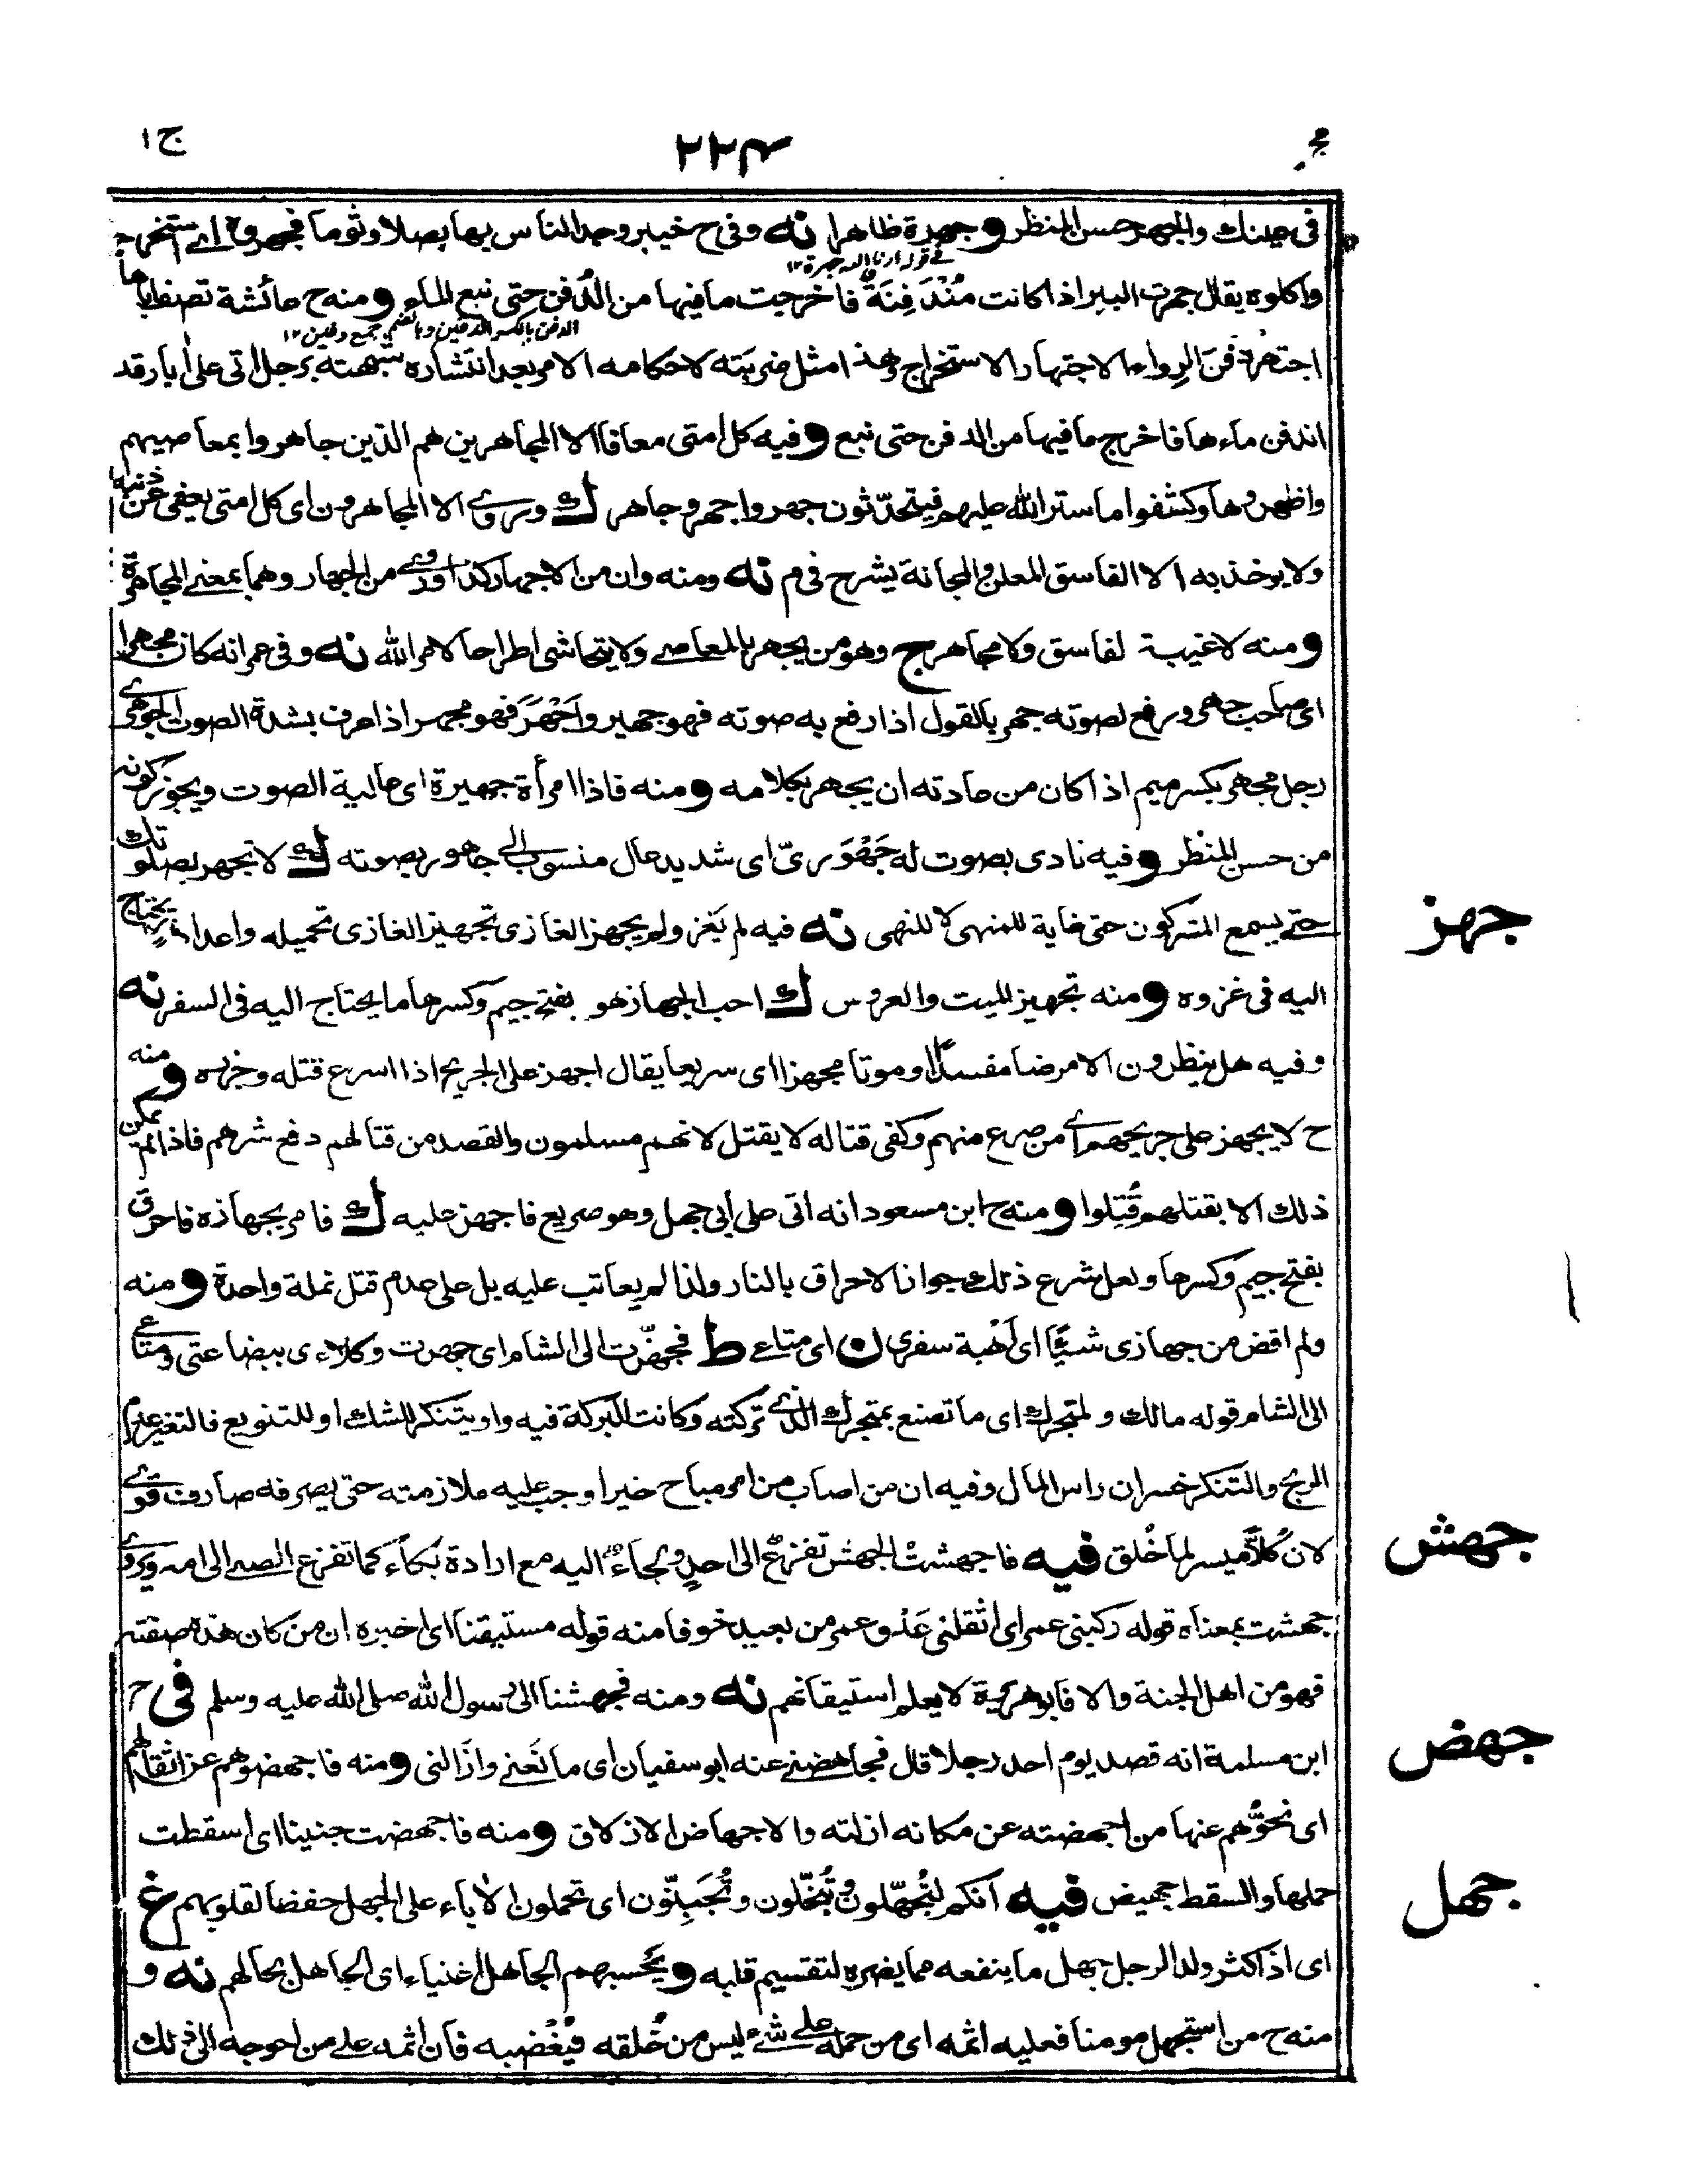 جه
٢٢٤
ج ١
في عينك والجهر حسن المنظر وجهرة ظاهرا نه وفي ح خيبر وجد الناس بها بصلا وثوما فجهروه اى استخرجوه
في قوله ارنا الله جهرة ١٢
واكلوه يقال جهرت البير اذا كانت مُنْدَفِنَة فاخرجت ما فيها من الدُفن حتى نبع الماء ومنه ح عائشة تصف اباها
الدفن بالكسر الدفين وبالضم جمع دفين ١٢
اجتهر دفن الرواء الاجتهار الاستخراج وهذا مثل ضربته لاحكامه الامر بعد انتشاره شبهته برجل اتى على ابار قد
اندفن ماءها فاخرج ما فيها من الدفن حتى نبع وفيه كل امتى معافا الا المجاهرين هم الذين جاهروا بمعاصيهم
واظهروها وكشفوا ما ستر الله عليهم فيتحدّثون جهر واجهر وجاهر ك وروى الا المجاهرون اى كل امتى يعفى عن ذنبه
ولا يوخذ به الا الفاسق المعلن والمجانة يشرح في م نه ومنه وان من الاجهار كذا وروى من الجهار وهما بمعنى المجاهرة
ومنه لا غيبة لفاسق ولا مجاهر ج وهو من يجهر بالمعاصى ولا يتحاشى اطراحا لامر الله نه وفي عمر انه كان مجهرا
اى صاحب جهر ورفع لصوته جهر بالقول اذا رفع به صوته فهو جهير واَجْهَرَ فهو مجهر اذا عرف بشدة الصوت الجوهرى
رجل مجهر بكسر ميم اذا كان من عادته ان يجهر بكلامه ومنه فاذا امرأة جهيرة اى عالية الصوت ويجوز كونه
من حسن المنظر وفيه نادى بصوت له جَهْوَرىّ اى شديد عال منسوب الى جاهور بصوته ك لا تجهر بصلوتك
حتى يسمع المشركون حتى غاية للمنهى لا للنهى نه فيه لم يَغز ولم يجهز الغازى تجهيز الغازى تحميله واعداد ما يحتاج
جهز
اليه في غزوه ومنه تجهيز للميت والعروس ك احب الجهاز هو بفتح جيم وكسرها ما يحتاج اليه في السفر نه
وفيه هل ينظرون الا مرضا مفسدًا او موتا مجهزا اى سريعا يقال اجهز على الجريح اذا اسرع قتله وحرره ومنه
ح لا يجهز على جريحهم اى من صرع منهم وكفى قتاله لا يقتل لانهم مسلمون والقصد من قتالهم دفع شرهم فاذا لم يمكن
ذلك الا بقتلهم قُتِلوا ومنه ح ابن مسعود انه اتى على ابى جهل وهو صريع فاجهز عليه ك فامر بجهازه فاحرق
بفتح جيم وكسرها ولعل شرع ذلك جواز الاحراق بالنار ولذا لم يعاتب عليه بل على عدم قتل نملة واحدة ومنه
ولم اقض من جهازى شيئا اى اُهبة سفرى ن اى متاعى ط فجهّزت الى الشام اى جهزت وكلاءى ببضاعتى ومتاعى
الى الشام قوله مالك ولمتجرك اى ما تصنع بمتجرك الذى تركته وكانت البركة فيه واو يتنكر للشك او للتنويع فالتغير عدم
الربح والتنكر خسران راس المال وفيه ان من اصاب من امر مباح خيرا وجب عليه ملازمته حتى يصرفه صارف قوى
لان كُلاًّ ميسر لما خُلق فيه فاجهشت الجهش تفزعٌ الى احدٍ وبجاءٌ اليه مع ارادة بكاء كما تفزع الصبى الى امه ويروى
جهش
جهشت بمعناه قوله ركبنى عمر اى اثقلنى عَدْو عمر من بعيد خوفا منه قوله مستيقنا اى اخبره ان من كان هذه صفته
فهو من اهل الجنة والا فابو هريرة لا يعلم استيقانهم نه ومنه فجهشنا الى رسول الله صلى الله عليه وسلم في ح
جهض
ابن مسلمة انه قصد يوم احد رجلا قال فجاهضنى عنه ابو سفيان اى مانَعنى وازَالنى ومنه فاجهضوهم عن اثقالهم
اى نحّوهم عنها من اجهضته عن مكانه ازلته والاجهاض الازلاق ومنه فاجهضت جنينا اى اسقطت
حملها والسقط جهيض فيه انكم لتُجهّلون وتُبَخّلون وتُجَبِنّون اى تحملون الاباء على الجهل حفضا لقلوبهم غ
جهل
اى اذ اكثر ولد الرجل جهل ما ينفعه مما يضره لتقسيم قلبه ويحسبهم الجاهل اغنياء اى الجاهل بحالهم نه و
منه ح من استجهل مومنا فعليه اثمه اى من حمله على شئ ليس من خُلقه فيُغضبه فان اثمه على من احوجه الى ذلك